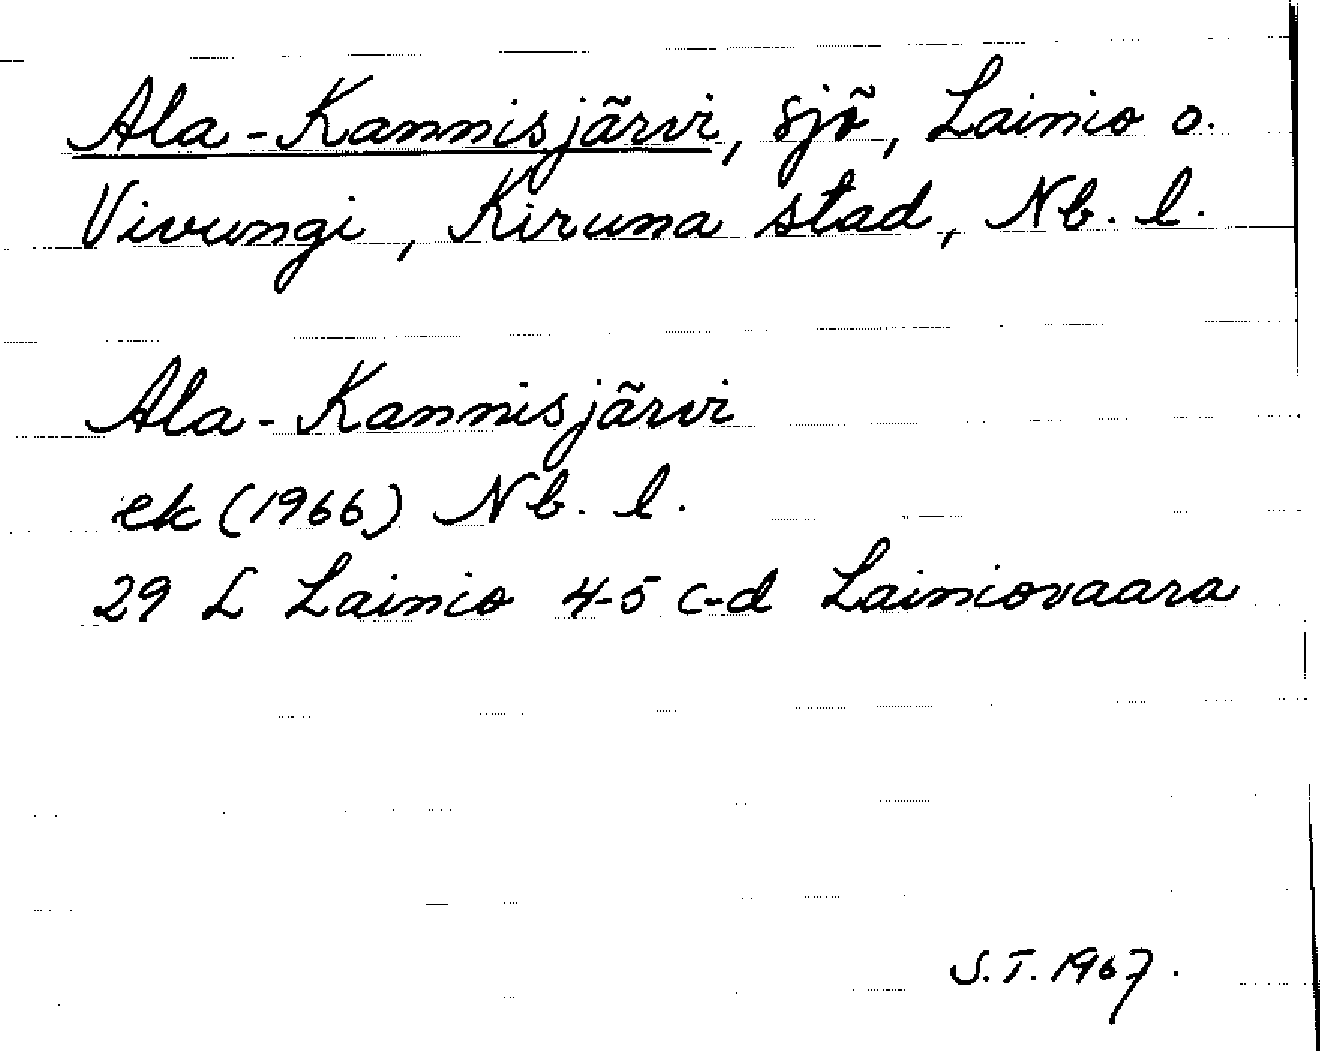 Ala-Kannisjärvi, sjö, Lainio o.
Vivungi, Kiruna stad, Nb. l.
Ala-Kannisjärvi
ek (1966) Nb. l.
29 L Lainio 4-5 c-d Lainiovaara
S.T. 1967.